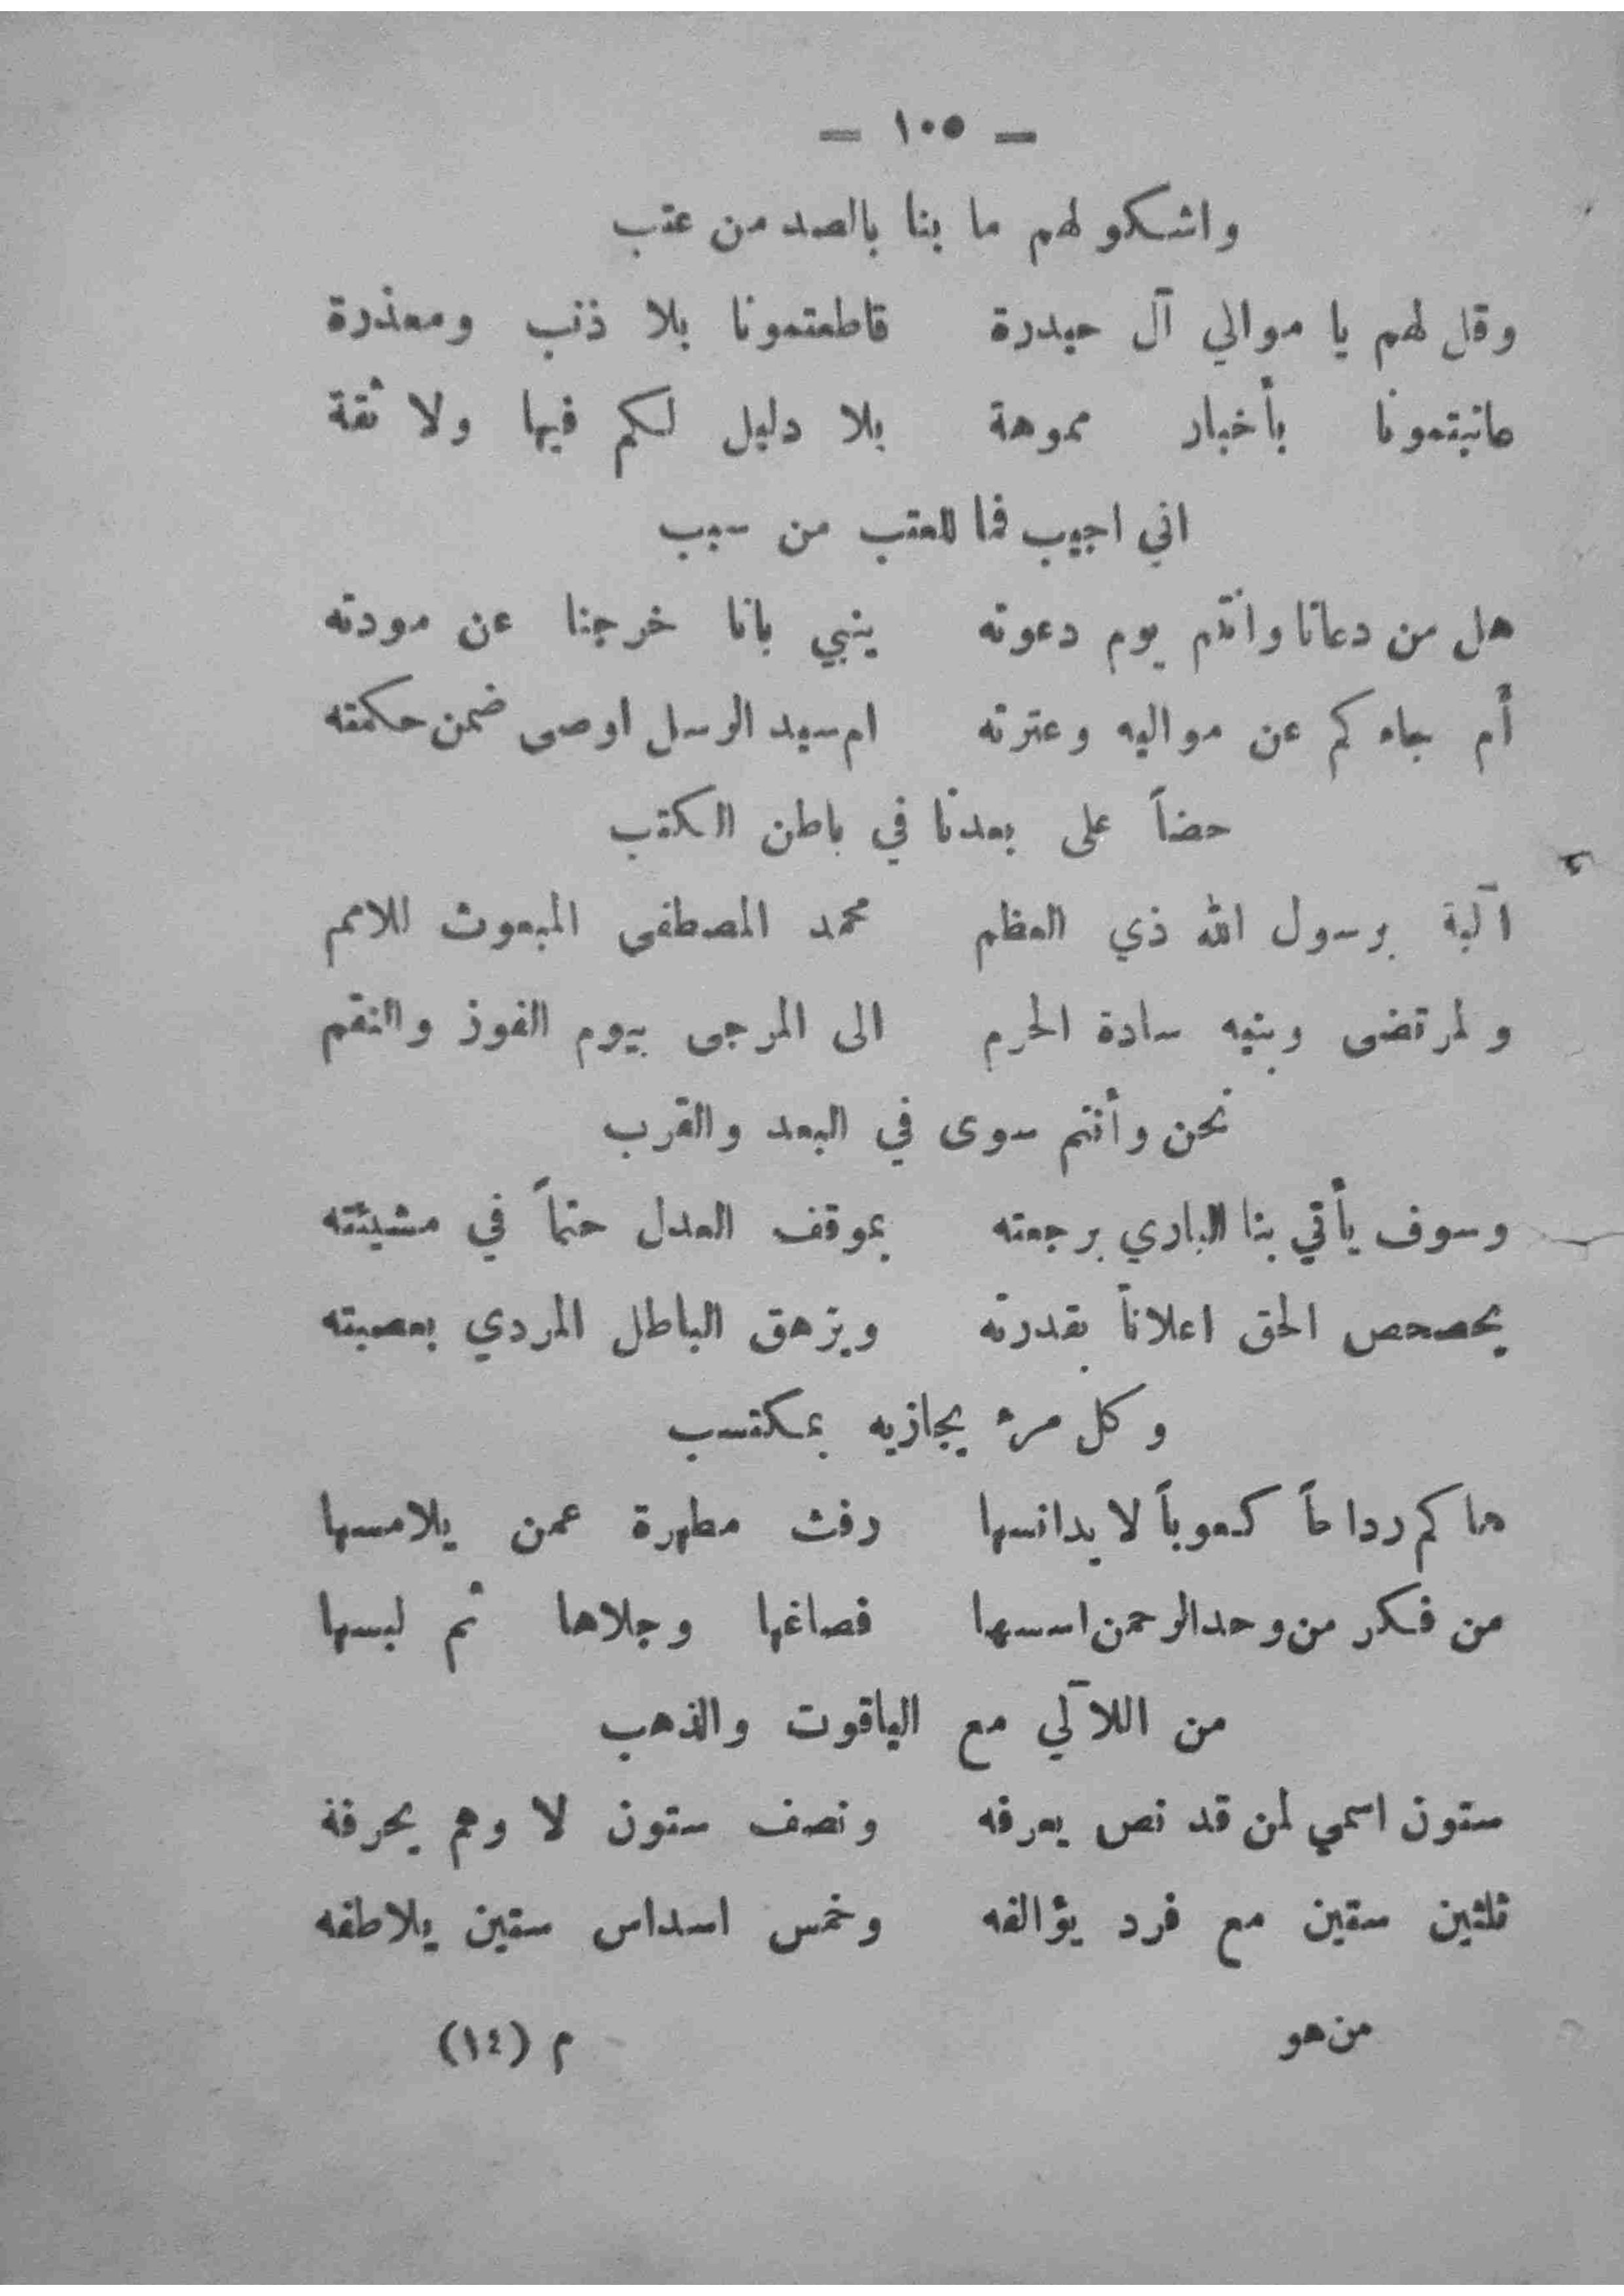 — ١٠٥ —
واشكو لهم ما بنا بالصد من عتب
وقل لهم يا موالي آل حيدرة قاطعتمونا بلا ذنب ومعذرة
عاتبتمونا بأخبار مموهة بلا دليل لكم فيها ولا ثقة
اني اجيب فما للعتب من سبب
هل من دعانا وانتم يوم دعوته ينبي بانا خرجنا عن مودته
أم جاءكم عن مواليه وعترته ام سيد الرسل اوصى ضمن حكمته
حضاً على بعدنا في باطن الكتب
آلية برسول الله ذي العظم محمد المصطفى المبعوث للامم
ولمرتضى وبنيه سادة الحرم الى المرجى بيوم الفوز والنقم
نحن وأنتم سوى في البعد والقرب
وسوف يأتي بنا الباري برجعته بموقف العدل حتماً في مشيئته
يحصحص الحق اعلاناً بقدرته ويزهق الباطل المردي بعصبته
وكل مرء يجازيه بمكتسب
هاكم رداحاً كعوباً لا يدانسها رفث مطهرة عمن يلامسها
من فكر من وحد الرحمن اسسها فصاغها وجلاها ثم لبسها
من اللآلي مع الياقوت والذهب
ستون اسمي لمن قد نص يعرفه ونصف ستون لا وهم يحرفة
ثلثين ستين مع فرد يؤالفه وخمس اسداس ستين يلاطفه
من هو م (١٤)